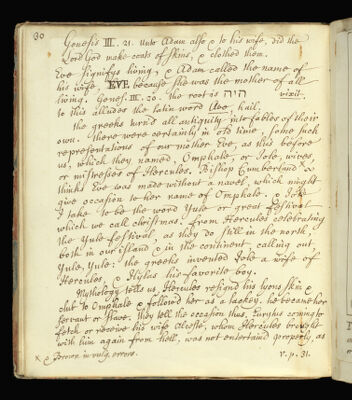 30
Genesis III. 21. Unto Adam also & to his wife, did the
Lord God make coats of skins, & clothed them.
Eve signifys living, & Adam called the name of
his wife, EVE because she was the mother of all
living. Genes. III. 20. the root is היה vixit.
to this alludes the latin word Ave, hail.
the greeks turn'd all antiquity into fables of their
own. there were certainly in old time, some such
representations of our mother Eve, as this before
us, which they named, Omphale, or Iole, wives,
or mistresses of Hercules. Bishop Cumberland
thinks Eve was made without a navel, which might
give occasion to her name of Omphale. & Iole
I take to be the word Yule our great festival
which we call christmas. from Hercules celebrating
the Yule festival, as they do still in the north,
both in our island & in the continent, calling out
Yule, Yule: the greeks invented Iole a wife of
Hercules, & Hylas his favorite boy.
Mythology tells us, Hercules resign'd his lyons skin &
club to Omphale & follow'd her as a lackey. he became her
servant or slave. they tell the occasion thus. Eurytus coming to
fetch or receive his wife Alceste, whom Hercules brought
with him again from hell, was not entertaind properly, as
x & Brown in vulg. errors.
v. p. 31.